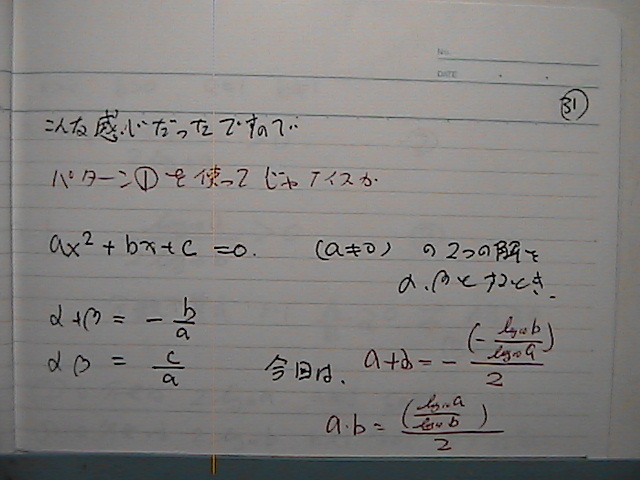 No.
DATE
31
こんな感じだったですので
パターン①を使って
ax² + bx + c = 0. (a≠0) の2つの解を
α、βとするとき.
α+β = - b/a
αβ = c/a
今回は、 a+b = - (- log₁₀b / log₁₀a) / 2
a・b = (log₁₀a / log₁₀b) / 2